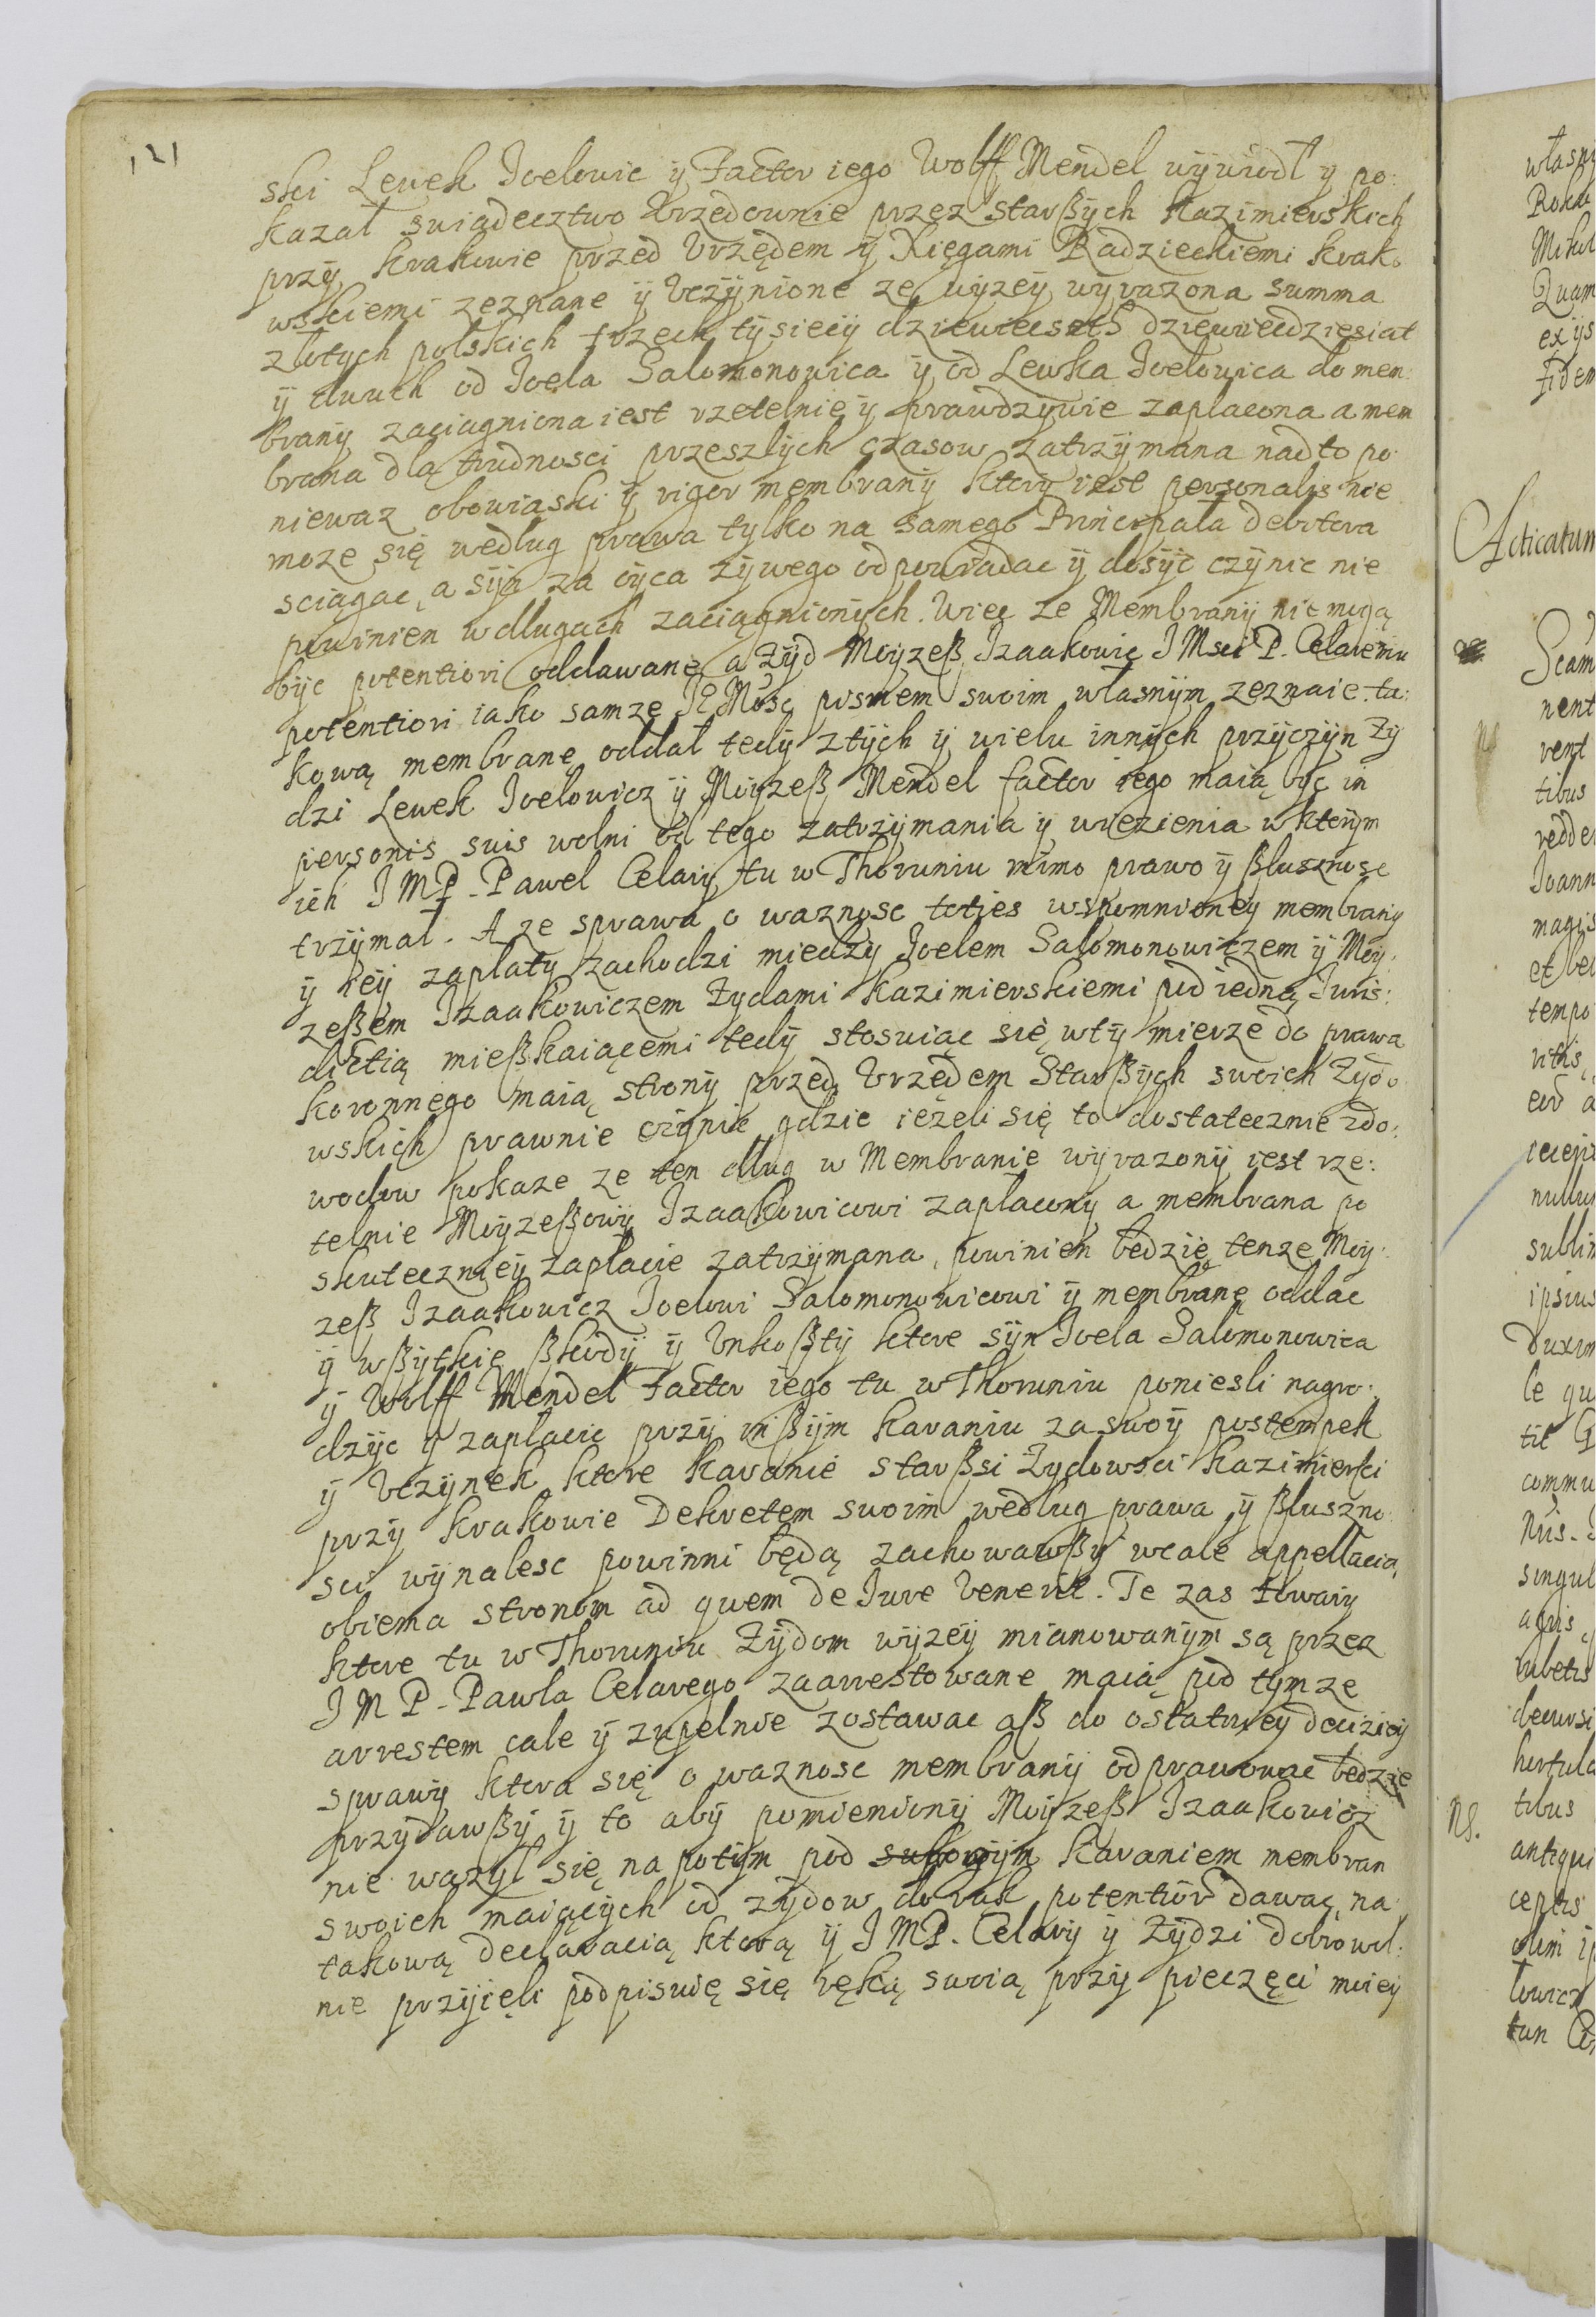 121
ski Lewek Joelowic ÿ Factor iego Wolff Mendel wÿwiodł y po:
kazał swiadecztwo Vrzędownie przez starßÿch Kazimierskich
przÿ Krakowie przed Vrzędem ÿ Xięgami Radzieckiemi krako
wskiemi zeznane ÿ Vczÿnione ze wÿzeÿ wÿrazona summa
złotych polskich trzech tÿsiecÿ dziewiecset dziewiecdziesiat
ÿ dwuch od Joela Salomonowica ÿ od Lewka Joelowica do mem:
branÿ zaciagniona iest rzetelnie ÿ prawdzÿwie zapłacona a mem
brana dla trudnosci przeszłÿch czasow zatrzÿmana nadto po:
niewaz obowiaski ÿ rigor membranÿ ktorÿ iest personalis nie
moze się według prawa tylko na samego Principała debitora
sciągac, a sÿn za oÿca zÿwego odpowiadac ÿ dosÿc czÿnic nie
powinien w długach zaciągnionÿch. Wiec ze Membranÿ nie mogą
bÿc potentiori oddawane a Zÿd Moÿzeß Izaakowic J Msci P. Celaremu
potentiori iako samze Je Mosc pismem swoim własnÿm zeznaie ta:
kową membranę oddał tedÿ z tÿch ÿ wielu innÿch przÿczÿn Zÿ
dzi Lewek Joelowicz ÿ Moÿzeß Mendel factor iego maią bÿc in
personis suis wolni od tego zatrzÿmania ÿ wiezienia w ktorÿm
ich J M P. Paweł Celarÿ tu w Thoruniu mimo prawo ÿ ßłusznosc
trzÿmał. A ze sprawa o waznosc toties wspomnioneÿ membranÿ
ÿ ieÿ zapłatÿ zachodzi miedzÿ Joelem Salomonowiczem ÿ Moÿ:
zeßem Izaakowiczem Zydami Kazimierskiemi pod iedną Juris:
dictią mießkaiącemi tedÿ stosuiąc się w tÿ mierze do prawa
koronnego maią stronÿ przed Vrzędem Starßÿch swoich Zÿdo
wskich prawnie czÿnic gdzie iezeli się to dostatecznie z do:
wodow pokaze ze ten dług w Membranie wÿrazonÿ iest rze:
telnie Moÿzeßowi Izaakowicowi zapłaconÿ a membrana po
skuteczneÿ zapłacie zatrzÿmana, powinien bedzie tenze Moÿ:
zeß Izaakowicz Joelowi Salomonowicowi ÿ membranę oddac
ÿ wßÿtkie ßkodÿ ÿ Vnkoßtÿ ktore sÿn Joela Salomonowica
ÿ Wolff Mendel Factor iego tu w Thoruniu poniesli nagro:
dzÿc ÿ zapłacic przÿ inßÿm karaniu za swoÿ postempek
ÿ Vczÿnek ktore karanie starßsi Zydowsci Kazimiersci
przÿ Krakowie Dekretem swoim według prawa ÿ ßłuszno:
sci wÿnalesc powinni będą zachowawßÿ wcale appellacią
obiema stronom ad quem de Jure Venerit. Te zas towarÿ
ktore tu w Thoruniu Zÿdom wÿzeÿ mianowanÿm są przez
J M P. Pawła Celarego zaarrestowane maią pod tymze
arrestem cale ÿ zupełnie zostawac aß do ostatnieÿ deciziÿ
sprawÿ ktora się o waznosc membranÿ odprawowac bedzie
przÿdawßÿ ÿ to abÿ pomienionÿ Moÿzeß Izaakowicz
nie wazył się na potÿm pod karaniem membran
swoich maiącÿch od zÿdow do rąk potentior dawac, na
takową declaracią ktorą ÿ J M P. Celarÿ ÿ Zÿdzi dobrowol:
nie przÿięli podpisuię się ręką swoią przÿ pieczęci moieÿ
Acticatum
nent
tibus
Joann
tempo
ipsius
commu
singul
decursi
Ns.
tibus
antiqui